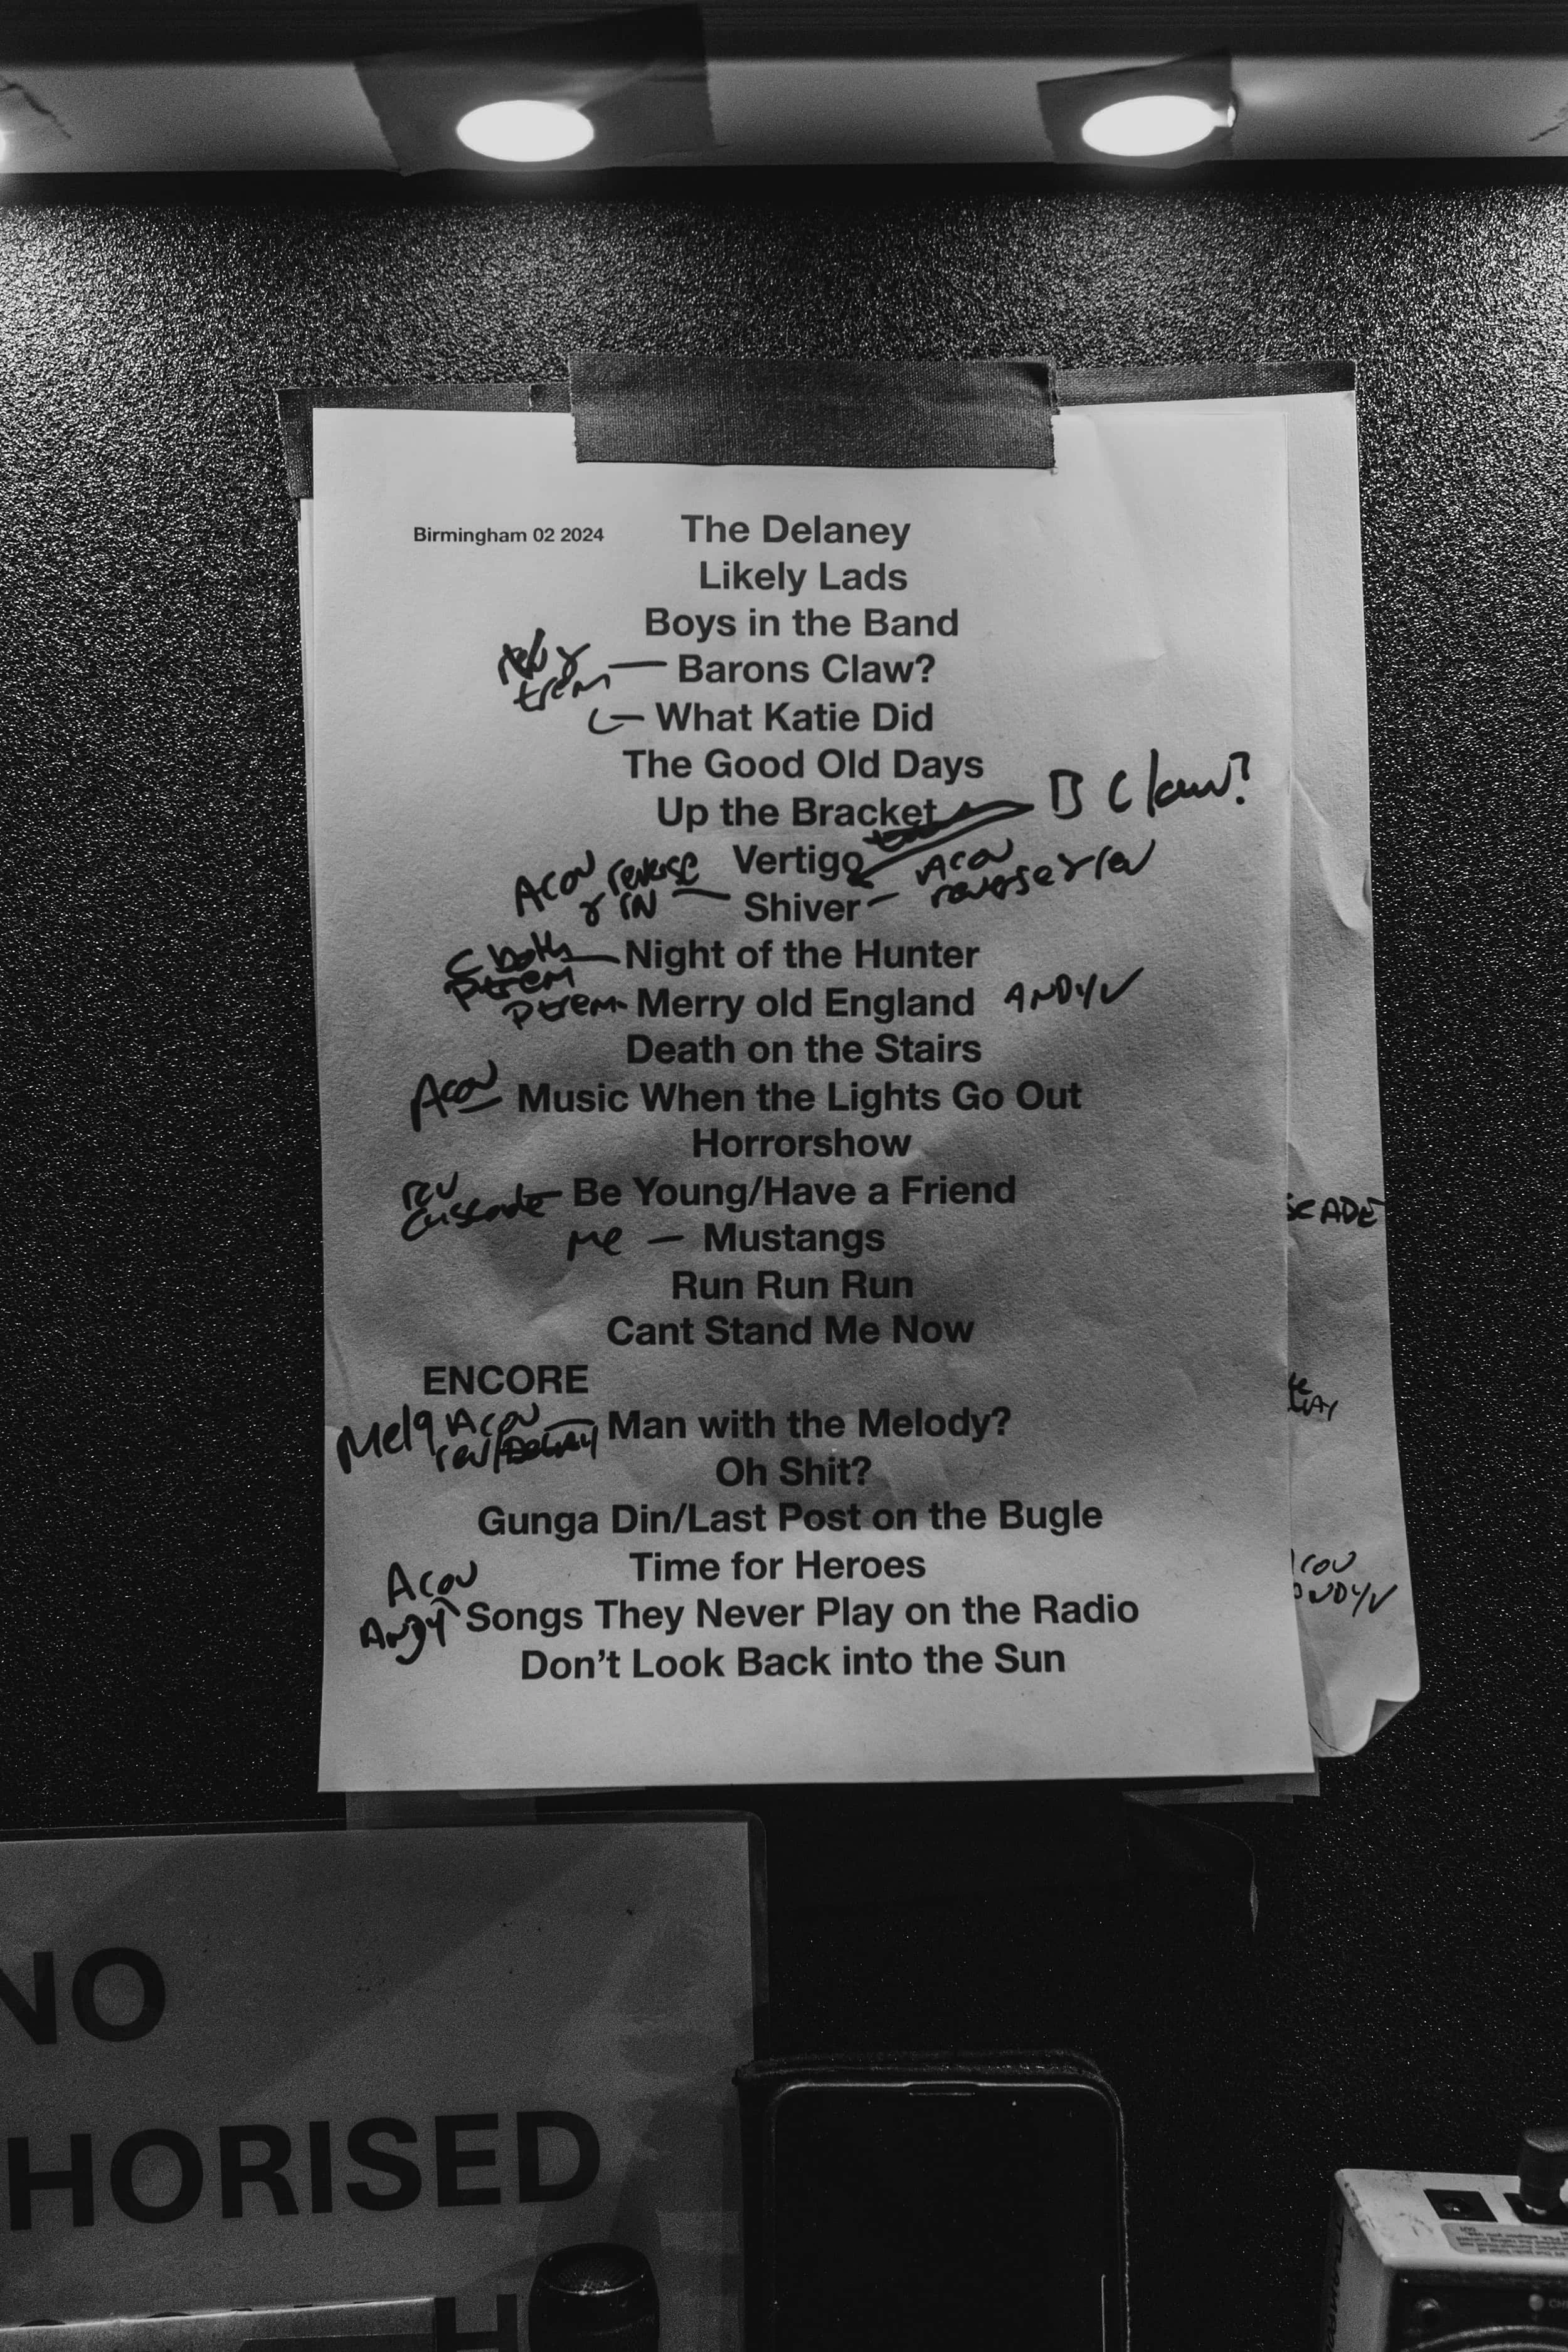 Birmingham 02 2024 The Delaney
Likely Lads
Boys in the Band
trem — Barons Claw?
What Katie Did
The Good Old Days
Up the Bracket B Claw?
Vertigo
Acou reverse
Shiver – Acou
reverse
C both — Night of the Hunter
P trem
P trem - Merry old England ANDY V
Death on the Stairs
Acou Music When the Lights Go Out
Horrorshow
rev
Cascade – Be Young/Have a Friend
Me — Mustangs
Run Run Run
Cant Stand Me Now
ENCORE
Acou
rev/DELAY — Man with the Melody?
Oh Shit?
Gunga Din/Last Post on the Bugle
Time for Heroes
Acou
Andy Songs They Never Play on the Radio
Don't Look Back into the Sun
SCADE
NO
HORISED
H